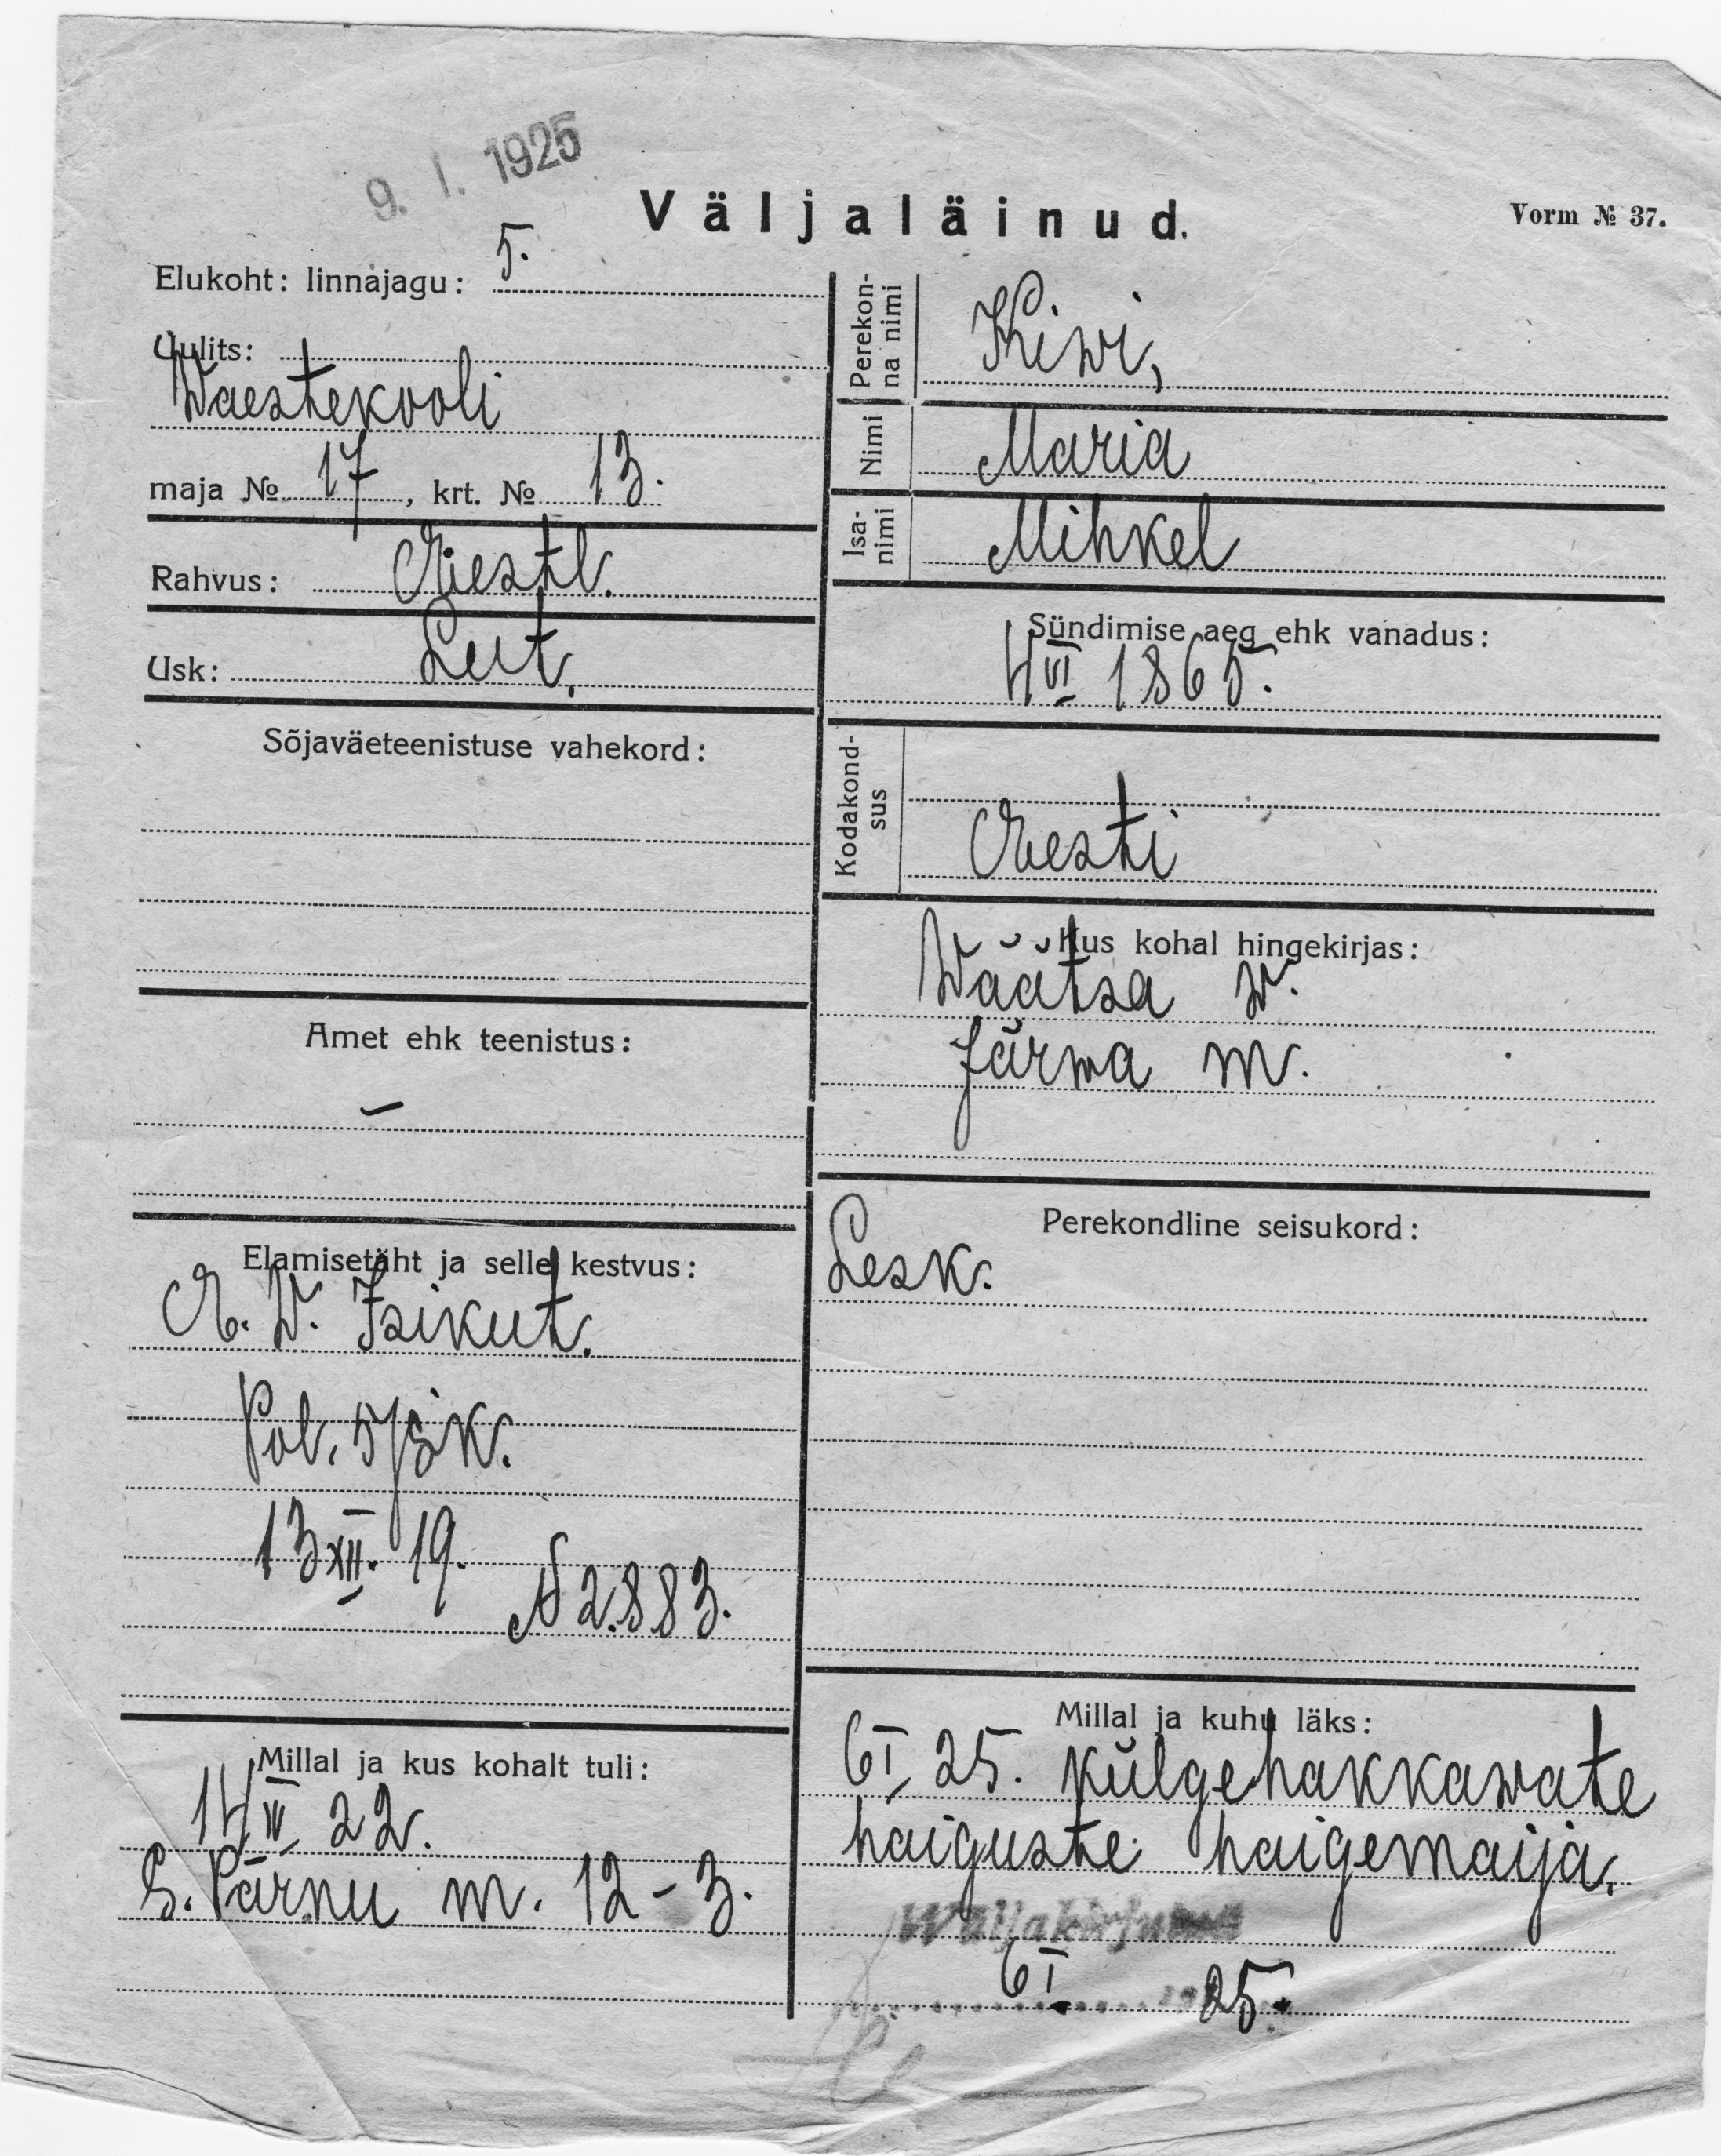 9. I. 1925
Väljaläinud.
Vorm № 37.
Elukoht: linnajagu: 5.
Uulits:
Waestekooli
maja № 17, krt. № 13.
Rahvus: Eestl.
Usk: Lut.
Sõjaväeteenistuse vahekord:
Amet ehk teenistus:
–
Elamisetäht ja selle kestvus:
E. W. Isikut.
Pol. 5 jsk.
13 XII. 19.
№ 2883.
Millal ja kus kohalt tuli:
22.
S. Pärnu m. 12-3.
Perekon-
na nimi
Kiwi,
Nimi
Maria
Isa-
nimi
Mihkel
Sündimise aeg ehk vanadus:
4 VI 1865.
Kodakond-
sus
Eesti
Kus kohal hingekirjas:
Wäätsa w.
Järwa m.
Perekondline seisukord:
Lesk.
Millal ja kuhu läks:
6 I 25. külgehakkawate
haiguste haigemaija.
Wäljakirjutatud
6 I 25.